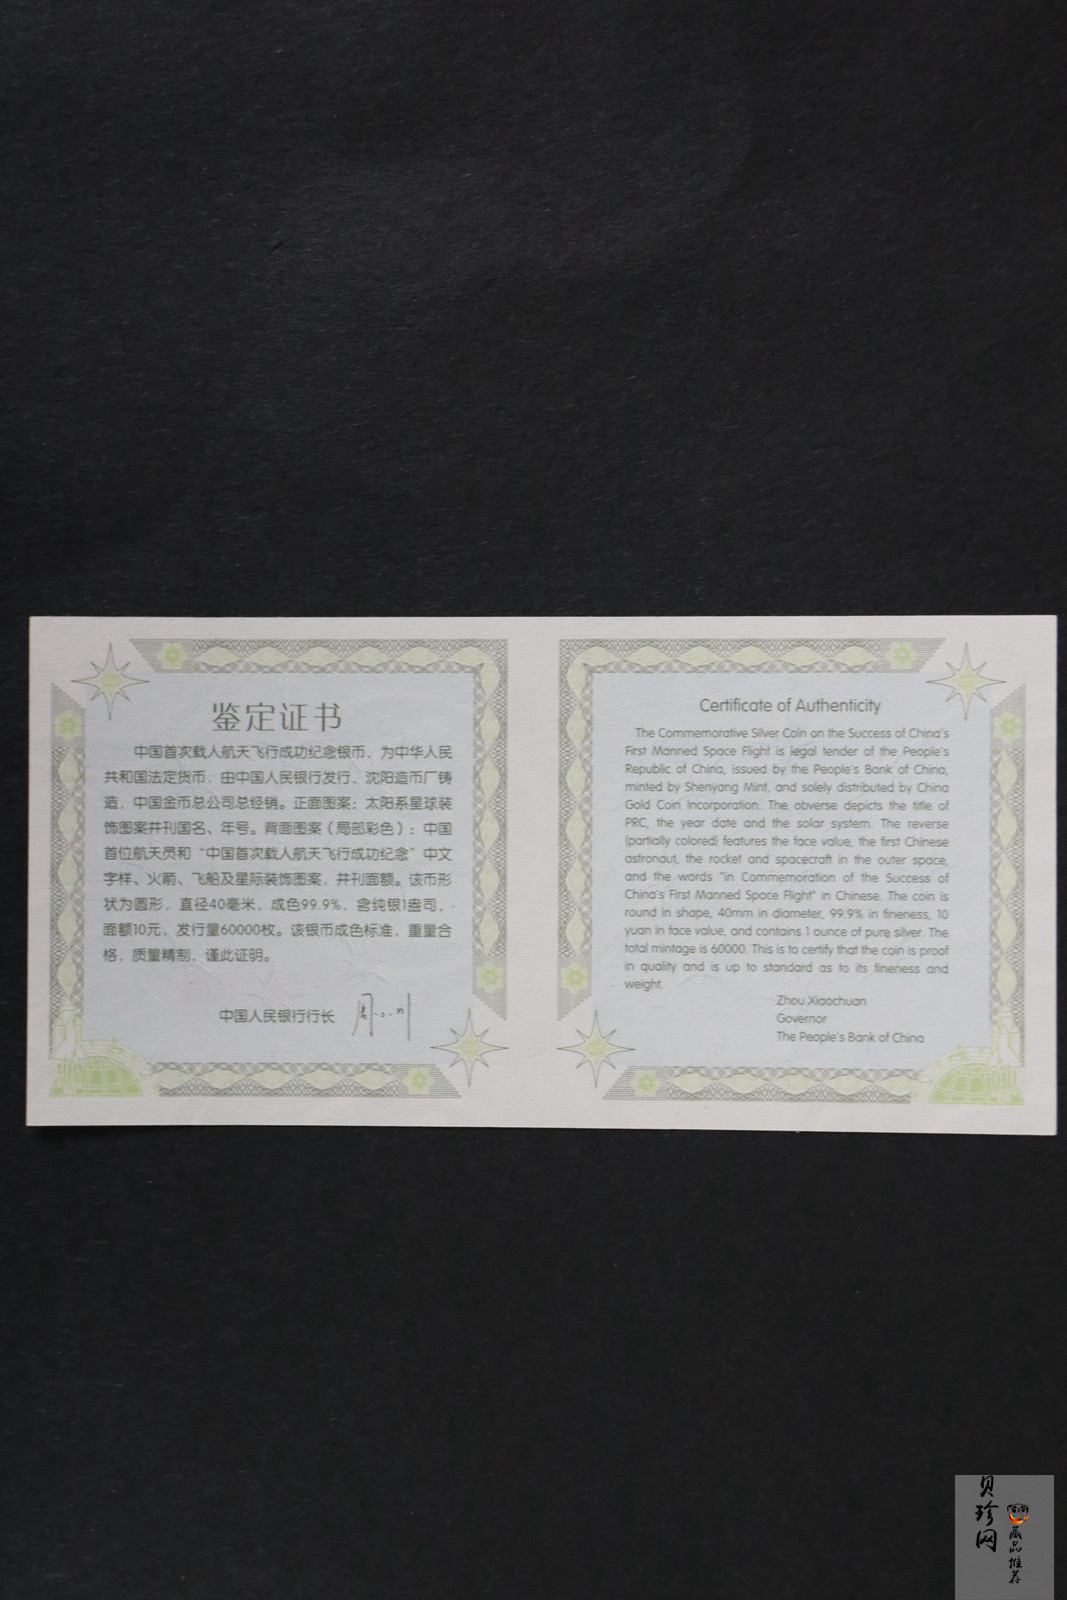 鉴定证书
中国首次载人航天飞行成功纪念银币，为中华人民
共和国法定货币，由中国人民银行发行，沈阳造币厂铸
造，中国金币总公司总经销。正面图案：太阳系星球装
饰图案并刊国名、年号。背面图案（局部彩色）：中国
首位航天员和“中国首次载人航天飞行成功纪念”中文
字样、火箭、飞船及星际装饰图案，并刊面额。该币形
状为圆形，直径40毫米，成色99.9%，含纯银1盎司，
面额10元，发行量60000枚。该银币成色标准，重量合
格，质量精制，谨此证明。
中国人民银行行长
Certificate of Authenticity
The Commemorative Silver Coin on the Success of China's
First Manned Space Flight is legal tender of the People's
Republic of China, issued by the People's Bank of China,
minted by Shenyang Mint, and solely distributed by China
Gold Coin Incorporation. The obverse depicts the title of
PRC, the year date and the solar system. The reverse
(partially colored) features the face value, the first Chinese
astronaut, the rocket and spacecraft in the outer space,
and the words "in Commemoration of the Success of
China's First Manned Space Flight" in Chinese. The coin is
round in shape, 40mm in diameter, 99.9% in fineness, 10
yuan in face value, and contains 1 ounce of pure silver. The
total mintage is 60000. This is to certify that the coin is proof
in quality and is up to standard as to its fineness and
weight.
Zhou Xiaochuan
Governor
The People's Bank of China
贝珍网
藏品推荐